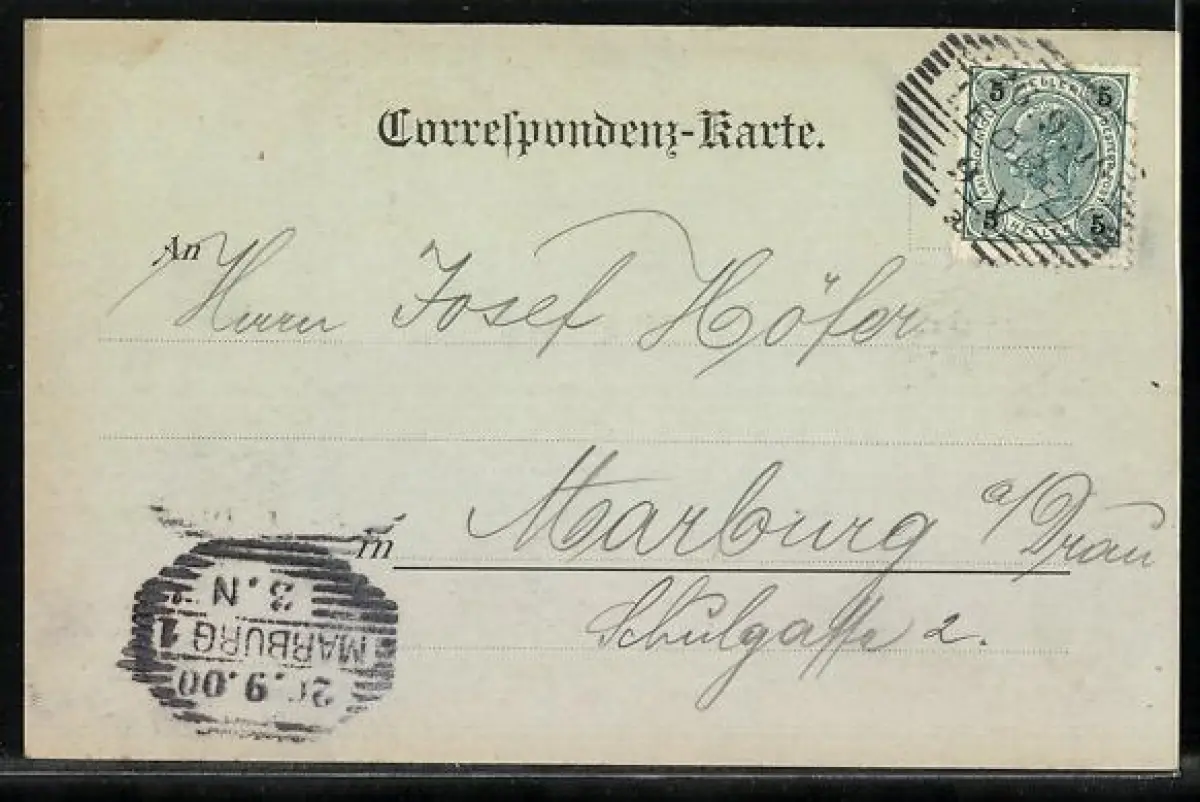 Correspondenz-Karte.
5 5
5 5
HELLER
An Herrn Josef Höfer
in Marburg a/Drau
Schulgasse 2.
3. N
MARBURG 1
9.00